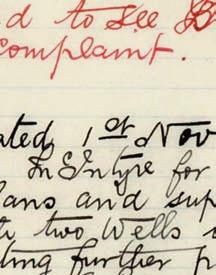 d to see
complaint.
ated, 1st Nov
McIntyre for
ans and sup
two Wells
ting further p